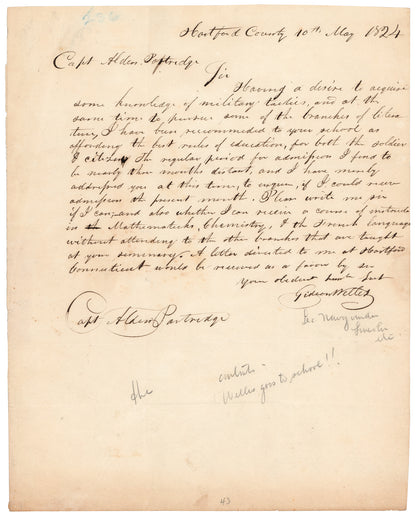 636
Hartford County 10th May 1824
Capt Alden Partridge
Sir
Having a desire to acquire
some knowledge of military tactics, and at the
same time to pursue some of the branches of litera
ture, I have been recommended to your school as
affording the best modes of education, for both the soldier
& citizen. The regular period for admission I find to
be nearly three months distant, and I have merely
addressed you at this time, to enquire, if I could receive
admission the present month. Please write me sir
if I can, and also whether I can receive a course of instruction
in Mathematicks, Chemistry, & the French language
without attending to the other branches that are taught
at your seminary. A letter directed to me at Hartford
Connecticut would be received as a favor by sir
Your obedient humb Servt
Gideon Welles
Capt. Alden Partridge
Sec Navy under
Lincoln
etc
the
Welles goes to school!!
43